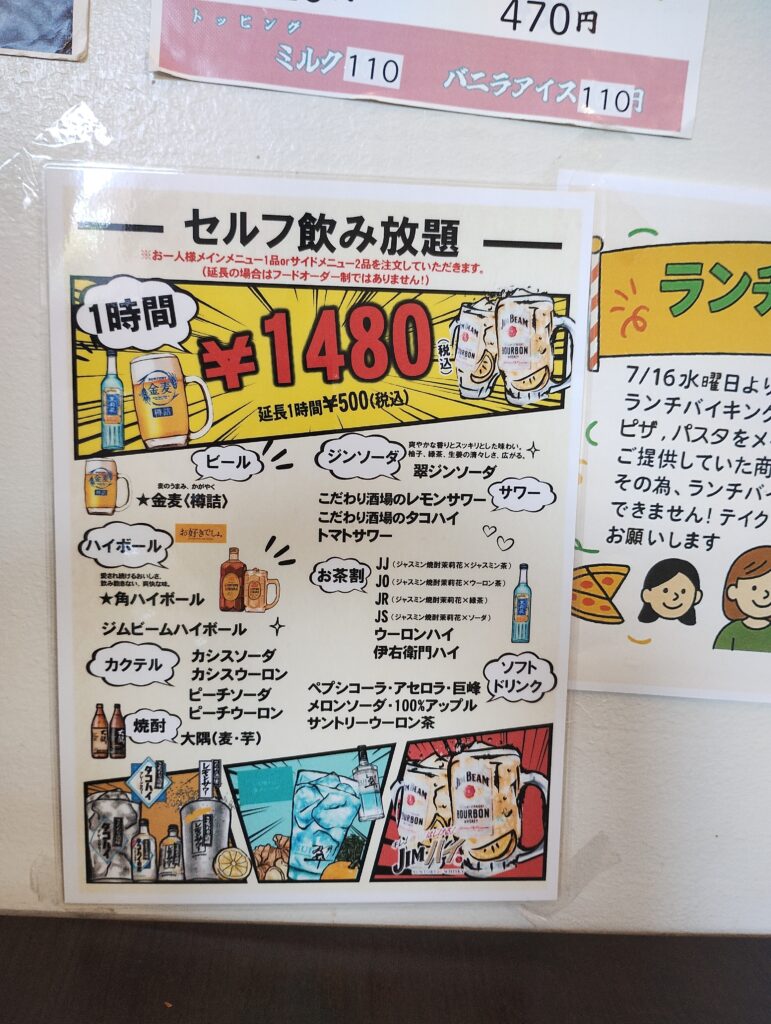 470円
トッピング
ミルク110
バニラアイス110円
セルフ飲み放題
※お一人様メインメニュー1品orサイドメニュー2品を注文していただきます。
(延長の場合はフードオーダー制ではありません!)
1時間
¥1480
(税込)
延長1時間¥500(税込)
金麦
樽詰
JIM BEAM
BOURBON
WHISKEY
ビール
麦のうまみ、かがやく
★金麦〈樽詰〉
ハイボール
お好きでしょ。
愛され続けるおいしさ、
飲み飽きない、爽快な味。
★角ハイボール
ジムビームハイボール
カクテル
カシスソーダ
カシスウーロン
ピーチソーダ
ピーチウーロン
焼酎
大隅(麦・芋)
ジンソーダ
爽やかな香りとスッキリとした味わい。
柚子、緑茶、生姜の清々しさ、広がる。
翠ジンソーダ
サワー
こだわり酒場のレモンサワー
こだわり酒場のタコハイ
トマトサワー
お茶割
JJ(ジャスミン焼酎茉莉花×ジャスミン茶)
JO(ジャスミン焼酎茉莉花×ウーロン茶)
JR(ジャスミン焼酎茉莉花×緑茶)
JS(ジャスミン焼酎茉莉花×ソーダ)
ウーロンハイ
伊右衛門ハイ
ソフト
ドリンク
ペプシコーラ・アセロラ・巨峰
メロンソーダ・100%アップル
サントリーウーロン茶
タコハイ
レモンサワー
翠
JIM BEAM
BOURBON
WHISKEY
JIMハイ
ランチ
7/16水曜日より
ランチバイキング
ピザ,パスタをメ
ご提供していた商
その為、ランチバイ
できません!テイク
お願いします